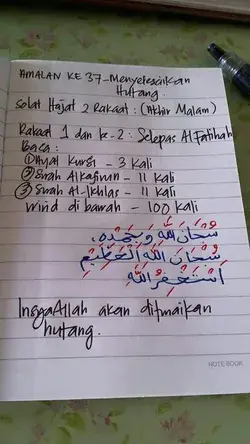 AMALAN KE 37 - Menyelesaikan
Hutang.
Solat Hajat 2 Rakaat : (Akhir Malam)
Rakaat 1 dan ke-2 : Selepas Al Fatihah
Baca :
① Ayat Kursi - 3 Kali
② Surah Al kafirun - 11 Kali
③ Surah Al-Ikhlas - 11 Kali
Wirid di bawah - 100 Kali
سُبْحَانَ اللهِ وَبِحَمْدِهِ،
سُبْحَانَ اللهِ الْعَظِيْمِ
أَسْتَغْفِرُ اللهَ
InsyaAllah akan ditunaikan
hutang.
NOTE BOOK